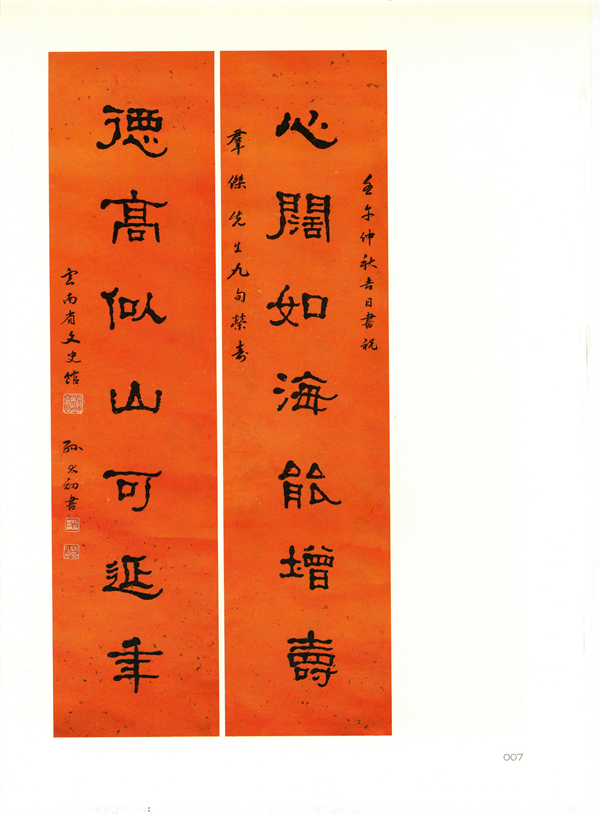 心闊如海能增壽
壬午仲秋吉日書祝
羣傑先生九旬榮壽
德高似山可延年
雲南省文史館
孫太初書
007